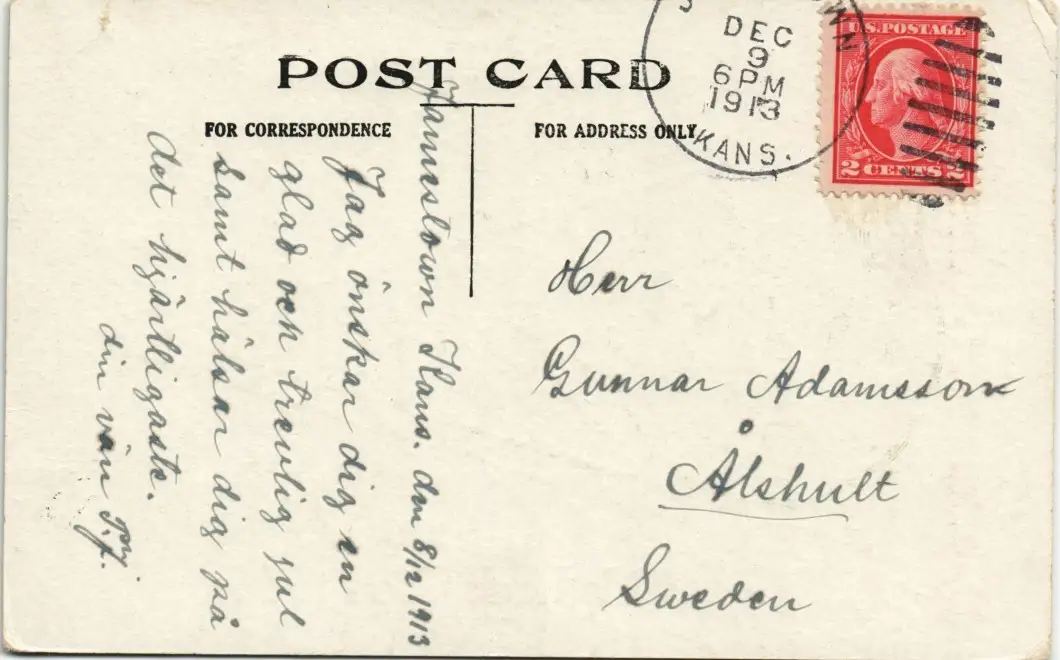 POST CARD
FOR CORRESPONDENCE
FOR ADDRESS ONLY
DEC
9
6PM
1913
KANS.
U.S.POSTAGE
2 CENTS 2
Jamestown Kans. den 8/12 1913
Jag önskar dig en
glad och trevlig jul
samt hälsar dig på
det hjärtligaste.
din vän
Herr
Gunnar Adamsson
Ålshult
Sweden